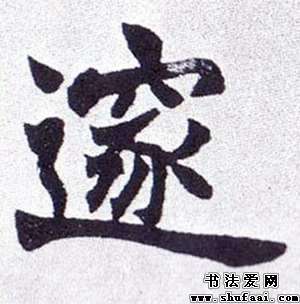 邃
书法爱网
www.shufaai.com